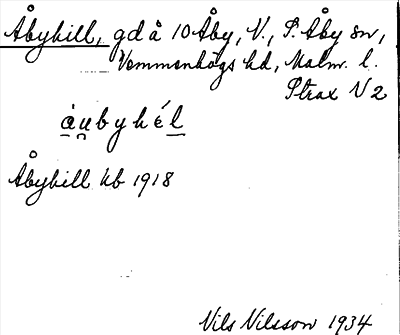 Åbyhill, gd å 10 Åby, V., S. Åby sn,
Vemmenhögs hd, Malm. l.
Strax V 2
àu̯byhél
Åbyhill kb 1918
Nils Nilsson 1934